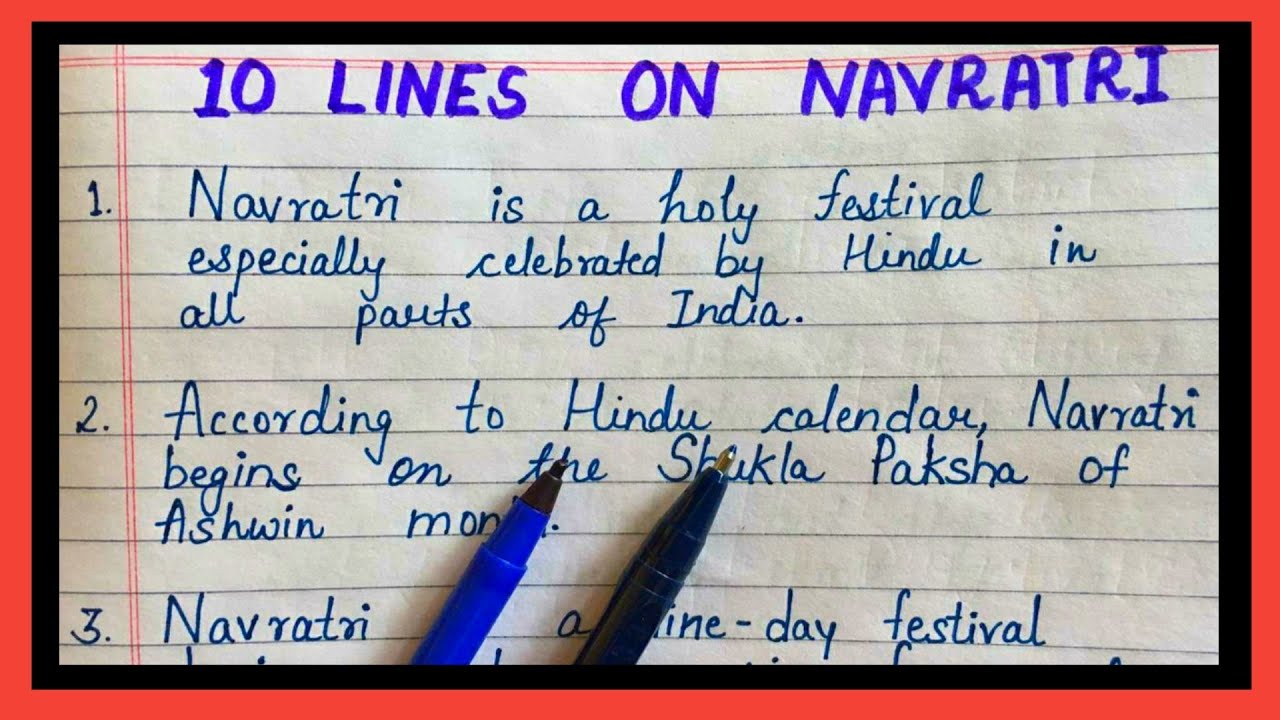 10 LINES ON NAVRATRI
1. Navratri is a holy festival
especially celebrated by Hindu in
all parts of India.
2. According to Hindu calendar, Navratri
begins on the Shukla Paksha of
Ashwin month.
3. Navratri a nine-day festival